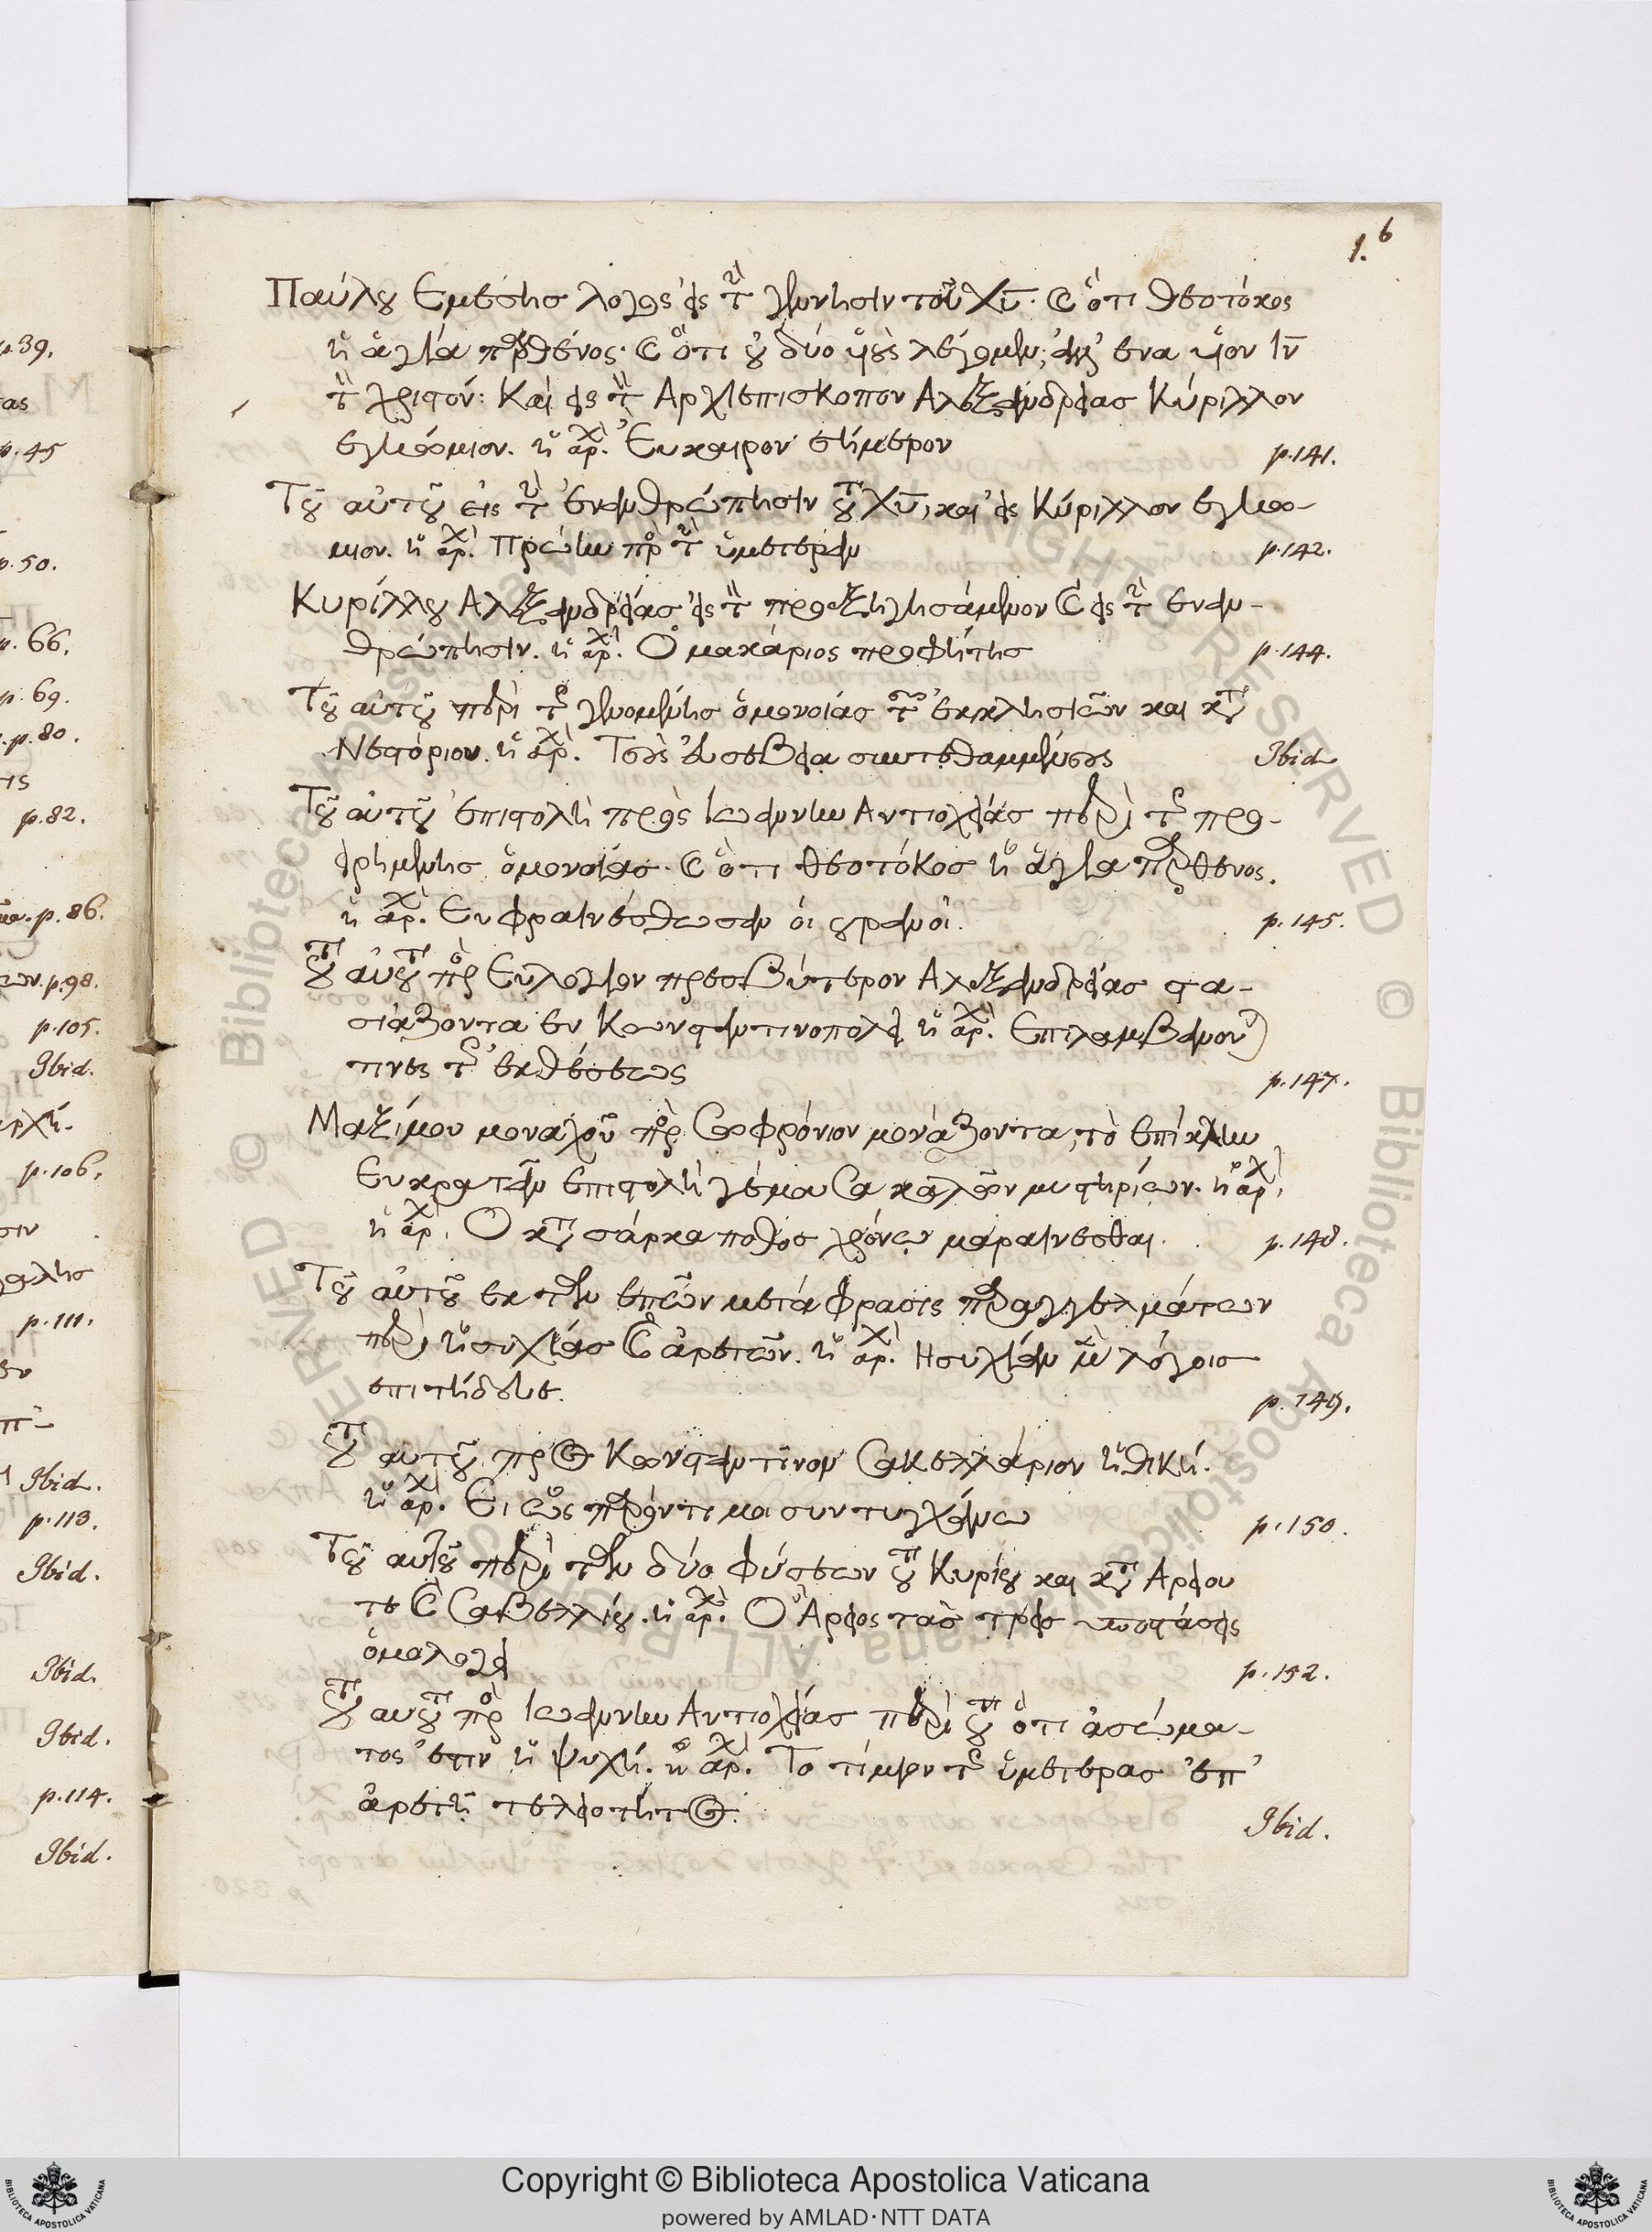 1.6
Παύλου Εμέσης λόγος εἰς τὴν γέννησιν τοῦ Χῦ. Καὶ ὅτι θεοτόκος
ἡ ἁγία παρθένος. Καὶ ὅτι οὐ δύο υἱοὺς λέγομεν, ἀλλ' ἕνα υἱὸν Ιν
τὸν χριστόν: Καὶ εἰς τὸν Αρχιεπίσκοπον Αλεξανδρείας Κύριλλον
εγκώμιον. ἡ ἀρχὴ. Εὔκαιρον σήμερον p. 141.
Τοῦ αὐτοῦ εἰς τὴν ἐνανθρώπησιν τοῦ Χῦ, καὶ εἰς Κύριλλον εγκώ-
μιον. ἡ ἀρχὴ. Πρώην πρὸς τὴν ὑμετέραν p. 142.
Κυρίλλου Αλεξανδρείας εἰς τὸν προεξηγησάμενον καὶ εἰς τὴν εναν-
θρώπησιν. ἡ ἀρχὴ. Ὁ μακάριος προφήτης p. 144.
Τοῦ αὐτοῦ περὶ τῆς γενομένης ὁμονοίας τῶν ἐκκλησιῶν καὶ κατὰ
Νεστόριον. ἡ ἀρχὴ. Τοὺς εὐσεβεία συντεθραμμένους Ibid
Τοῦ αὐτοῦ ἐπιστολὴ πρὸς Ιωάννην Αντιοχείας περὶ τῆς προ-
ειρημένης ὁμονοίας. Καὶ ὅτι θεοτόκος ἡ ἁγία παρθένος.
ἡ ἀρχὴ. Ευφραινέσθωσαν οἱ ουρανοὶ. p. 145.
Τοῦ αὐτοῦ πρὸς Ευλόγιον πρεσβύτερον Αλεξανδρείας στα-
σιάζοντα εν Κωνσταντινοπολει ἡ ἀρχὴ. Επιλαμβάνονται
τινες τῆς ἐκθέσεως p. 147.
Μαξίμου μοναχοῦ πρὸς Σωφρόνιον μονάζοντα, τὸ ἐπίκλην
Ευκρατᾶν επιστολὴ γέμουσα καλῶν μυστηρίων. ἡ ἀρχὴ,
ἡ ἀρχὴ, Ὁ κατὰ σάρκα ποθος χρόνῳ μαραίνεσθαι. p. 148.
Τοῦ αὐτοῦ εκ τῶν επῶν μετάφρασις παραγγελμάτων
περὶ ἡσυχίας καὶ ἀρετῶν. ἡ ἀρχὴ. Ησυχίαν μὲν λόγοις
επιτήδευε. p. 149.
Τοῦ αυτοῦ προς Κωνσταντῖνον Σακελλάριον ἠθική.
ἡ ἀρχὴ. Ει ὡς παρόντι μοι συντυγχάνω p. 150.
Τοῦ αυτοῦ περὶ τῶν δύο φύσεων τοῦ Κυρίου και κατὰ Αρείου
τε καὶ Σαβελλίου. ἡ ἀρχὴ. Ὁ Ἄρειος τὰς τρεῖς υποστάσεις
ὁμολογεῖ p. 152.
Τοῦ αυτοῦ πρὸς Ιωάννην Αντιοχείας περὶ τοῦ ὅτι ἀσώμα-
τος ἐστιν ἡ ψυχή. ἡ ἀρχὴ. Το τίμιον τῆς ὑμετέρας ἐπ'
ἀρετῇ τελειοτητος. Ibid.
p. 39.
p. 45
p. 50.
p. 66.
p. 69.
p. 80.
p. 82.
p. 86.
p. 98.
p. 105.
Ibid.
p. 106.
p. 111.
Ibid.
p. 113.
Ibid.
Ibid.
Ibid.
p. 114.
Ibid.
© Biblioteca Apostolica Vaticana ALL RIGHTS RESERVED
Copyright © Biblioteca Apostolica Vaticana
powered by AMLAD·NTT DATA
BIBLIOTECA APOSTOLICA VATICANA
BIBLIOTECA APOSTOLICA VATICANA